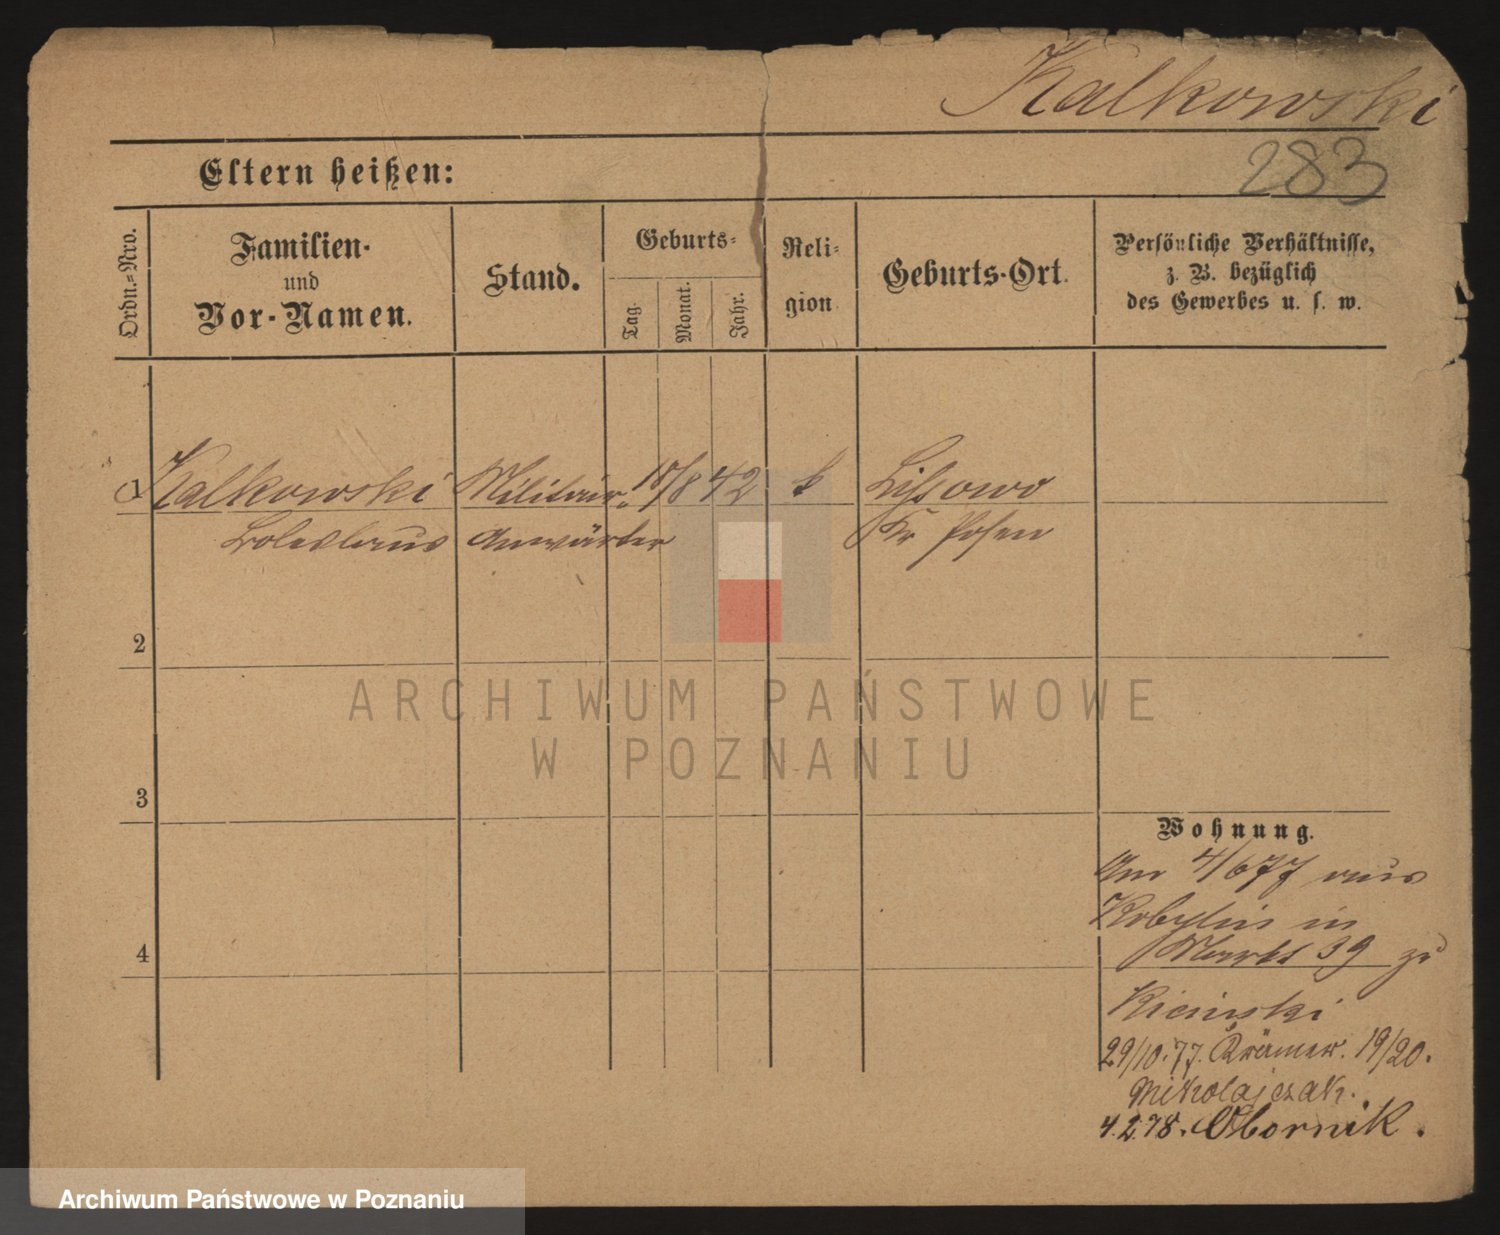 Kalkowski
283
Eltern heißen:
Ordn.=Nro.
Familien-
und
Vor-Namen.
Stand.
Geburts=
Tag.
Monat.
Jahr.
Reli=
gion
Geburts-Ort.
Persönliche Verhältnisse,
z. B. bezüglich
des Gewerbes u. s. w.
1 Kalkowski Militair- /8 42 k Lissowo
Boleslaus Anwärter Kr Posen
2
3
4
Wohnung.
Am 4/6 77 aus
Kobylin in
Markt 39 zu
29/10.77. Krämer. 19/20.
Mikolajczak.
4.2.78. Obornik.
ARCHIWUM PAŃSTWOWE
W POZNANIU
Archiwum Państwowe w Poznaniu